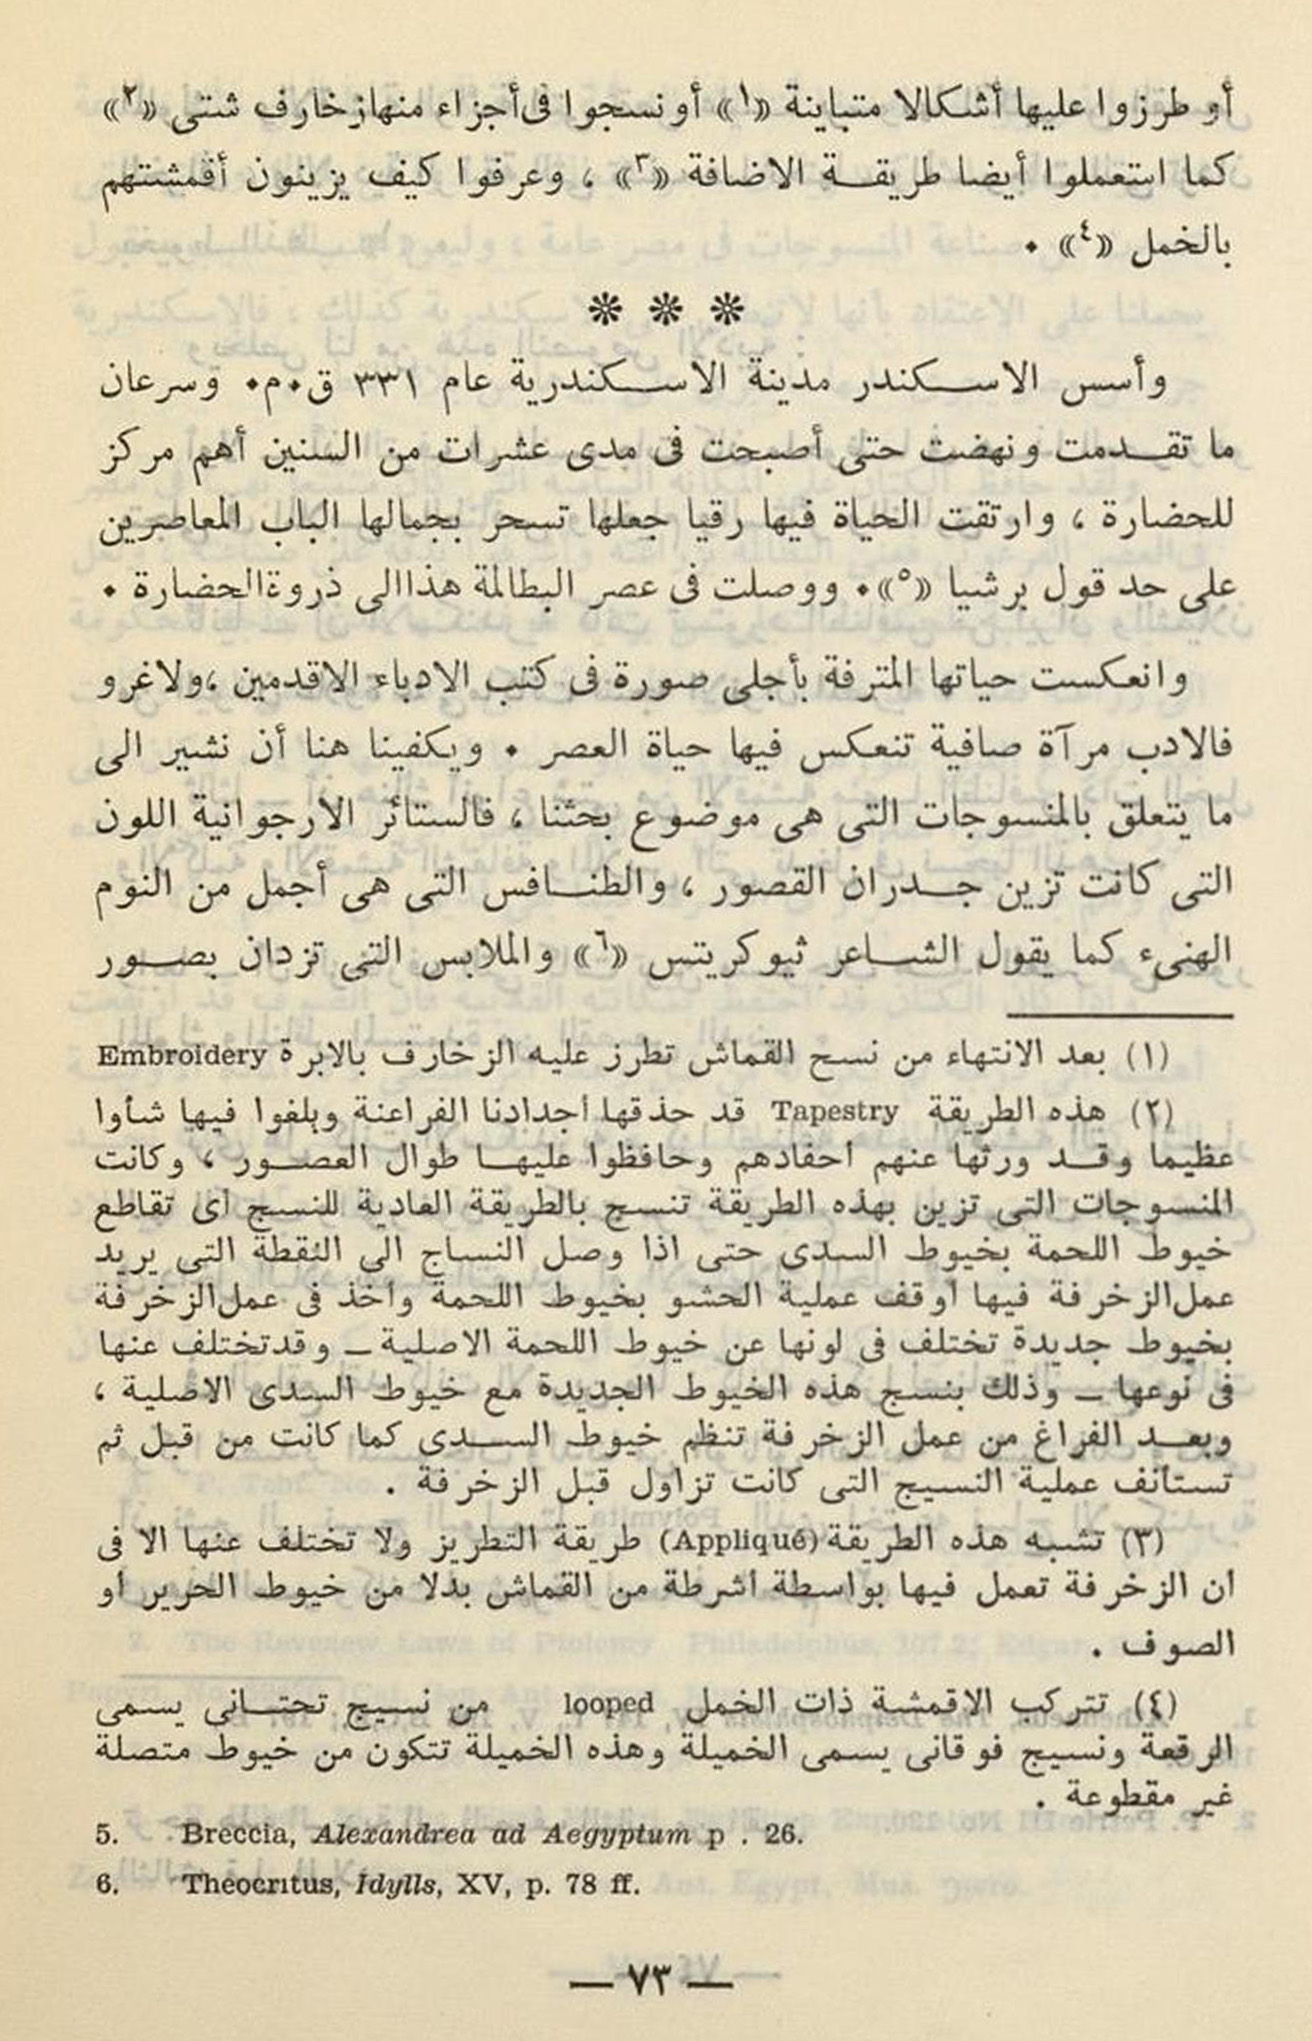 أو طرزوا عليها أشكالا متباينة «١» أو نسجوا فى أجزاء منها زخارف شتى «٢»
كما استعملوا أيضا طريقـــة الاضافة «٣» ، وعرفوا كيف يزينون أقمشتهم
بالخمل «٤» ٠
❊ ❊ ❊
وأسس الاســـكندر مدينة الاســـكندرية عام ٣٣١ ق٠م٠ وسرعان
ما تقـــدمت ونهضت حتى أصبحت فى مدى عشرات من السنين أهم مركز
للحضارة ، وارتقت الحياة فيها رقيا جعلها تسحر بجمالها الباب المعاصرين
على حد قول برشيا «٥»٠ ووصلت فى عصر البطالمة هذا الى ذروة الحضارة ٠
وانعكست حياتها المترفة بأجلى صورة فى كتب الادباء الاقدمين ، ولا غرو
فالادب مرآة صافية تنعكس فيها حياة العصر ٠ ويكفينا هنا أن نشير الى
ما يتعلق بالمنسوجات التى هى موضوع بحثنا ، فالستائر الارجوانية اللون
التى كانت تزين جـــدران القصور ، والطنـــافس التى هى أجمل من النوم
الهنىء كما يقول الشـــاعر ثيوكريتس «٦» والملابس التى تزدان بصـــور
(١) بعد الانتهاء من نسج القماش تطرز عليه الزخارف بالابرة Embroidery
(٢) هذه الطريقة Tapestry قد حذقها أجدادنا الفراعنة وبلغوا فيها شأوا
عظيما وقـــد ورثها عنهم أحفادهم وحافظوا عليهـــا طوال العصـــور ، وكانت
المنسوجات التى تزين بهذه الطريقة تنسج بالطريقة العادية للنسج أى تقاطع
خيوط اللحمة بخيوط السدى حتى اذا وصل النساج الى النقطة التى يريد
عمل الزخرفة فيها أوقف عملية الحشو بخيوط اللحمة وأخذ فى عمل الزخرفة
بخيوط جديدة تختلف فى لونها عن خيوط اللحمة الاصلية ــ وقد تختلف عنها
فى نوعها ــ وذلك بنسج هذه الخيوط الجديدة مع خيوط السدى الاصلية ،
وبعـــد الفراغ من عمل الزخرفة تنظم خيوط الســـدى كما كانت من قبل ثم
تستأنف عملية النسيج التى كانت تزاول قبل الزخرفة .
(٣) تشبه هذه الطريقة (Appliqué) طريقة التطريز ولا تختلف عنها الا فى
أن الزخرفة تعمل فيها بواسطة أشرطة من القماش بدلا من خيوط الحرير أو
الصوف .
(٤) تتركب الاقمشة ذات الخمل looped من نسيج تحتـــانى يسمى
الرقعة ونسيج فوقانى يسمى الخميلة وهذه الخميلة تتكون من خيوط متصلة
غير مقطوعة .
5. Breccia, Alexandrea ad Aegyptum p . 26.
6. Theocritus, Idylls, XV, p. 78 ff.
— ٧٣ —